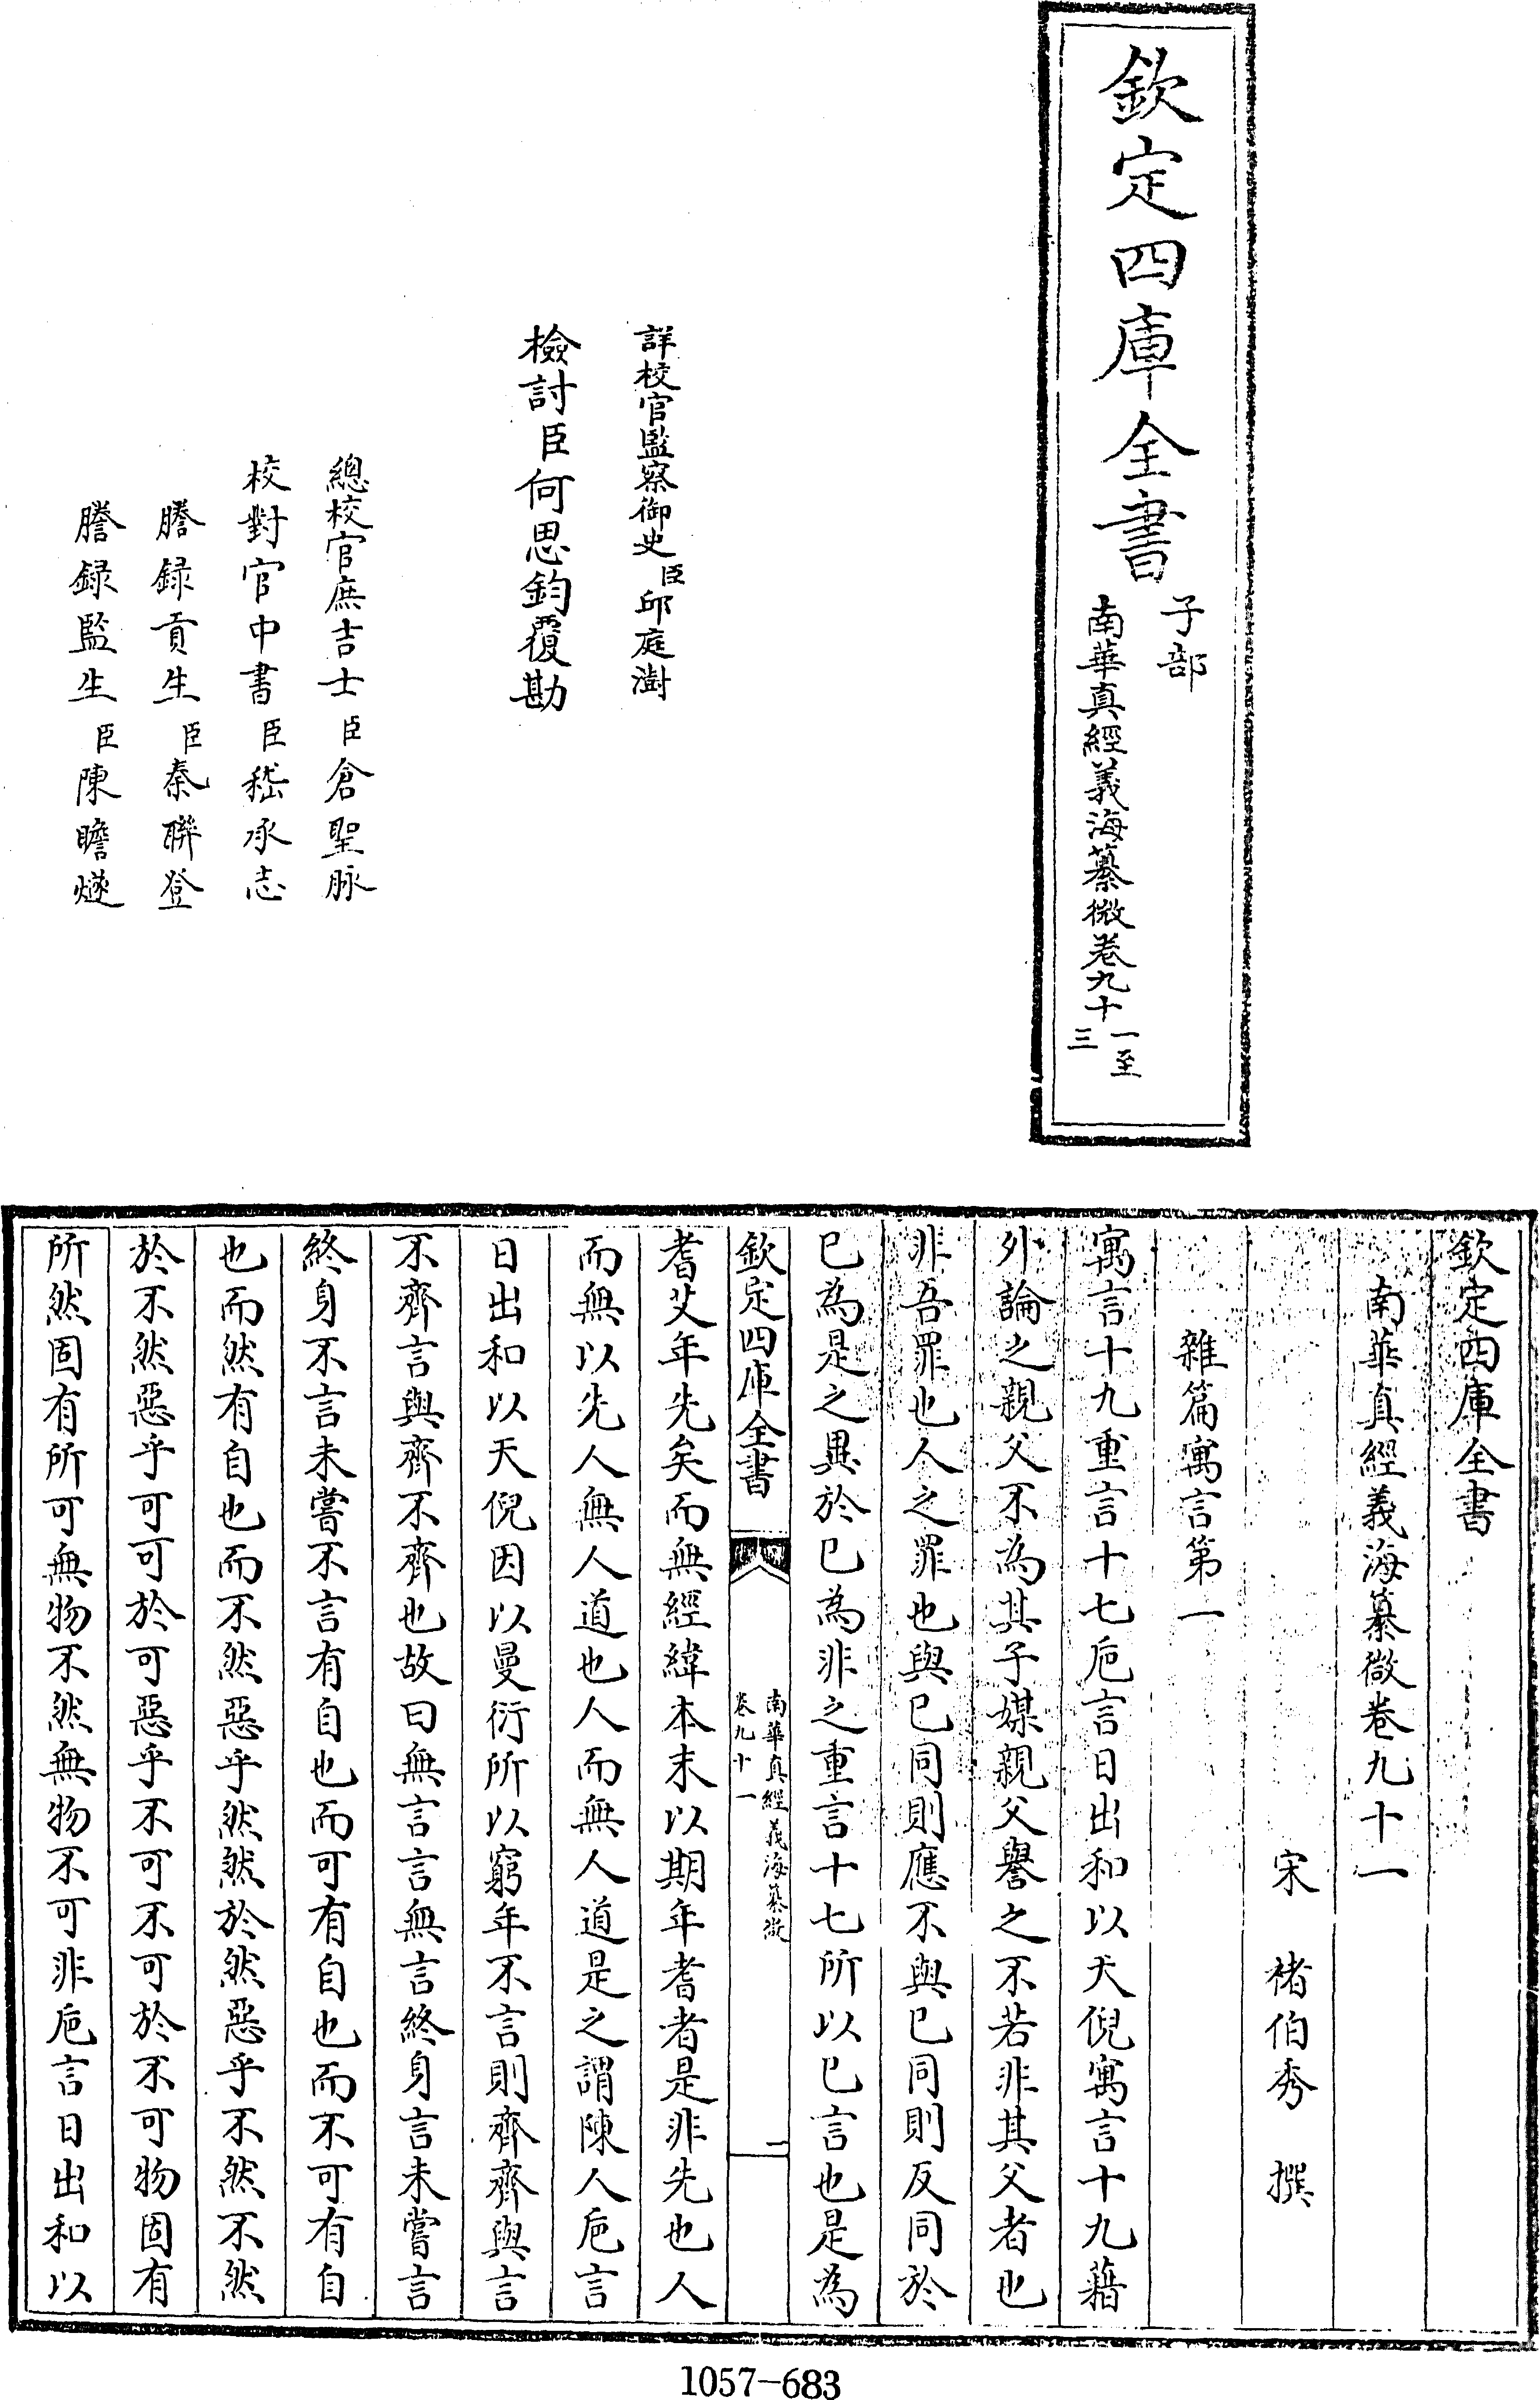 欽定四庫全書
子部
南華真經義海纂微卷九十
一至
三
詳校官監察御史臣邱庭澍
檢討臣何思鈞覆勘
總校官庶吉士臣倉聖脉
校對官中書臣嵇承志
謄録貢生臣秦聯登
謄録監生臣陳瞻燧
欽定四庫全書
南華真經義海纂微卷九十一
宋 褚伯秀 撰
雜篇寓言第一
寓言十九重言十七巵言日出和以天倪寓言十九藉
外論之親父不為其子媒親父譽之不若非其父者也
非吾罪也人之罪也與已同則應不與已同則反同於
已為是之異於已為非之重言十七所以已言也是為
欽定四庫全書
南華真經義海纂微
卷九十一
一
耆艾年先矣而無經緯本末以期年耆者是非先也人
而無以先人無人道也人而無人道是之謂陳人巵言
日出和以天倪因以曼衍所以窮年不言則齊齊與言
不齊言與齊不齊也故曰無言言無言終身言未嘗言
終身不言未嘗不言有自也而可有自也而不可有自
也而然有自也而不然惡乎然然於然惡乎不然不然
於不然惡乎可可於可惡乎不可不可於不可物固有
所然固有所可無物不然無物不可非巵言日出和以
1057-683